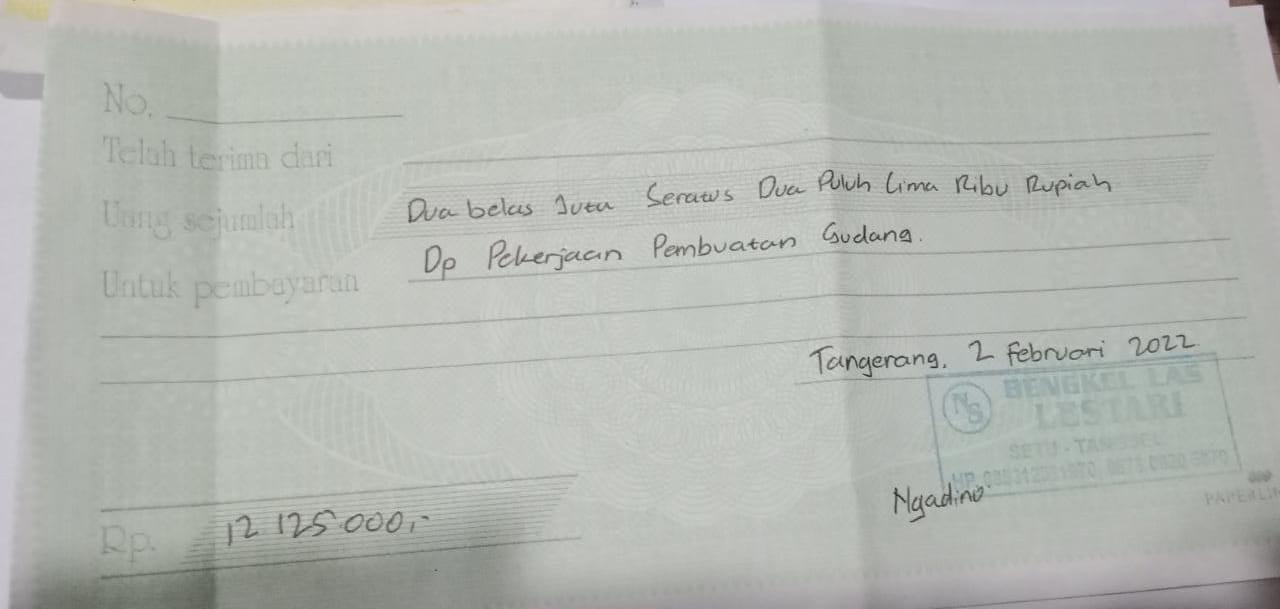 No.
Telah terima dari
Uang sejumlah Dua belas Juta Seratus Dua Puluh Lima Ribu Rupiah
Untuk pembayaran Dp Pekerjaan Pembuatan Gudang.
Tangerang, 2 Februari 2022
NS
BENGKEL LAS
LESTARI
SETU - TANGSEL
HP.
Ngadino
PAPERLINE
Rp. 12 125 000,-